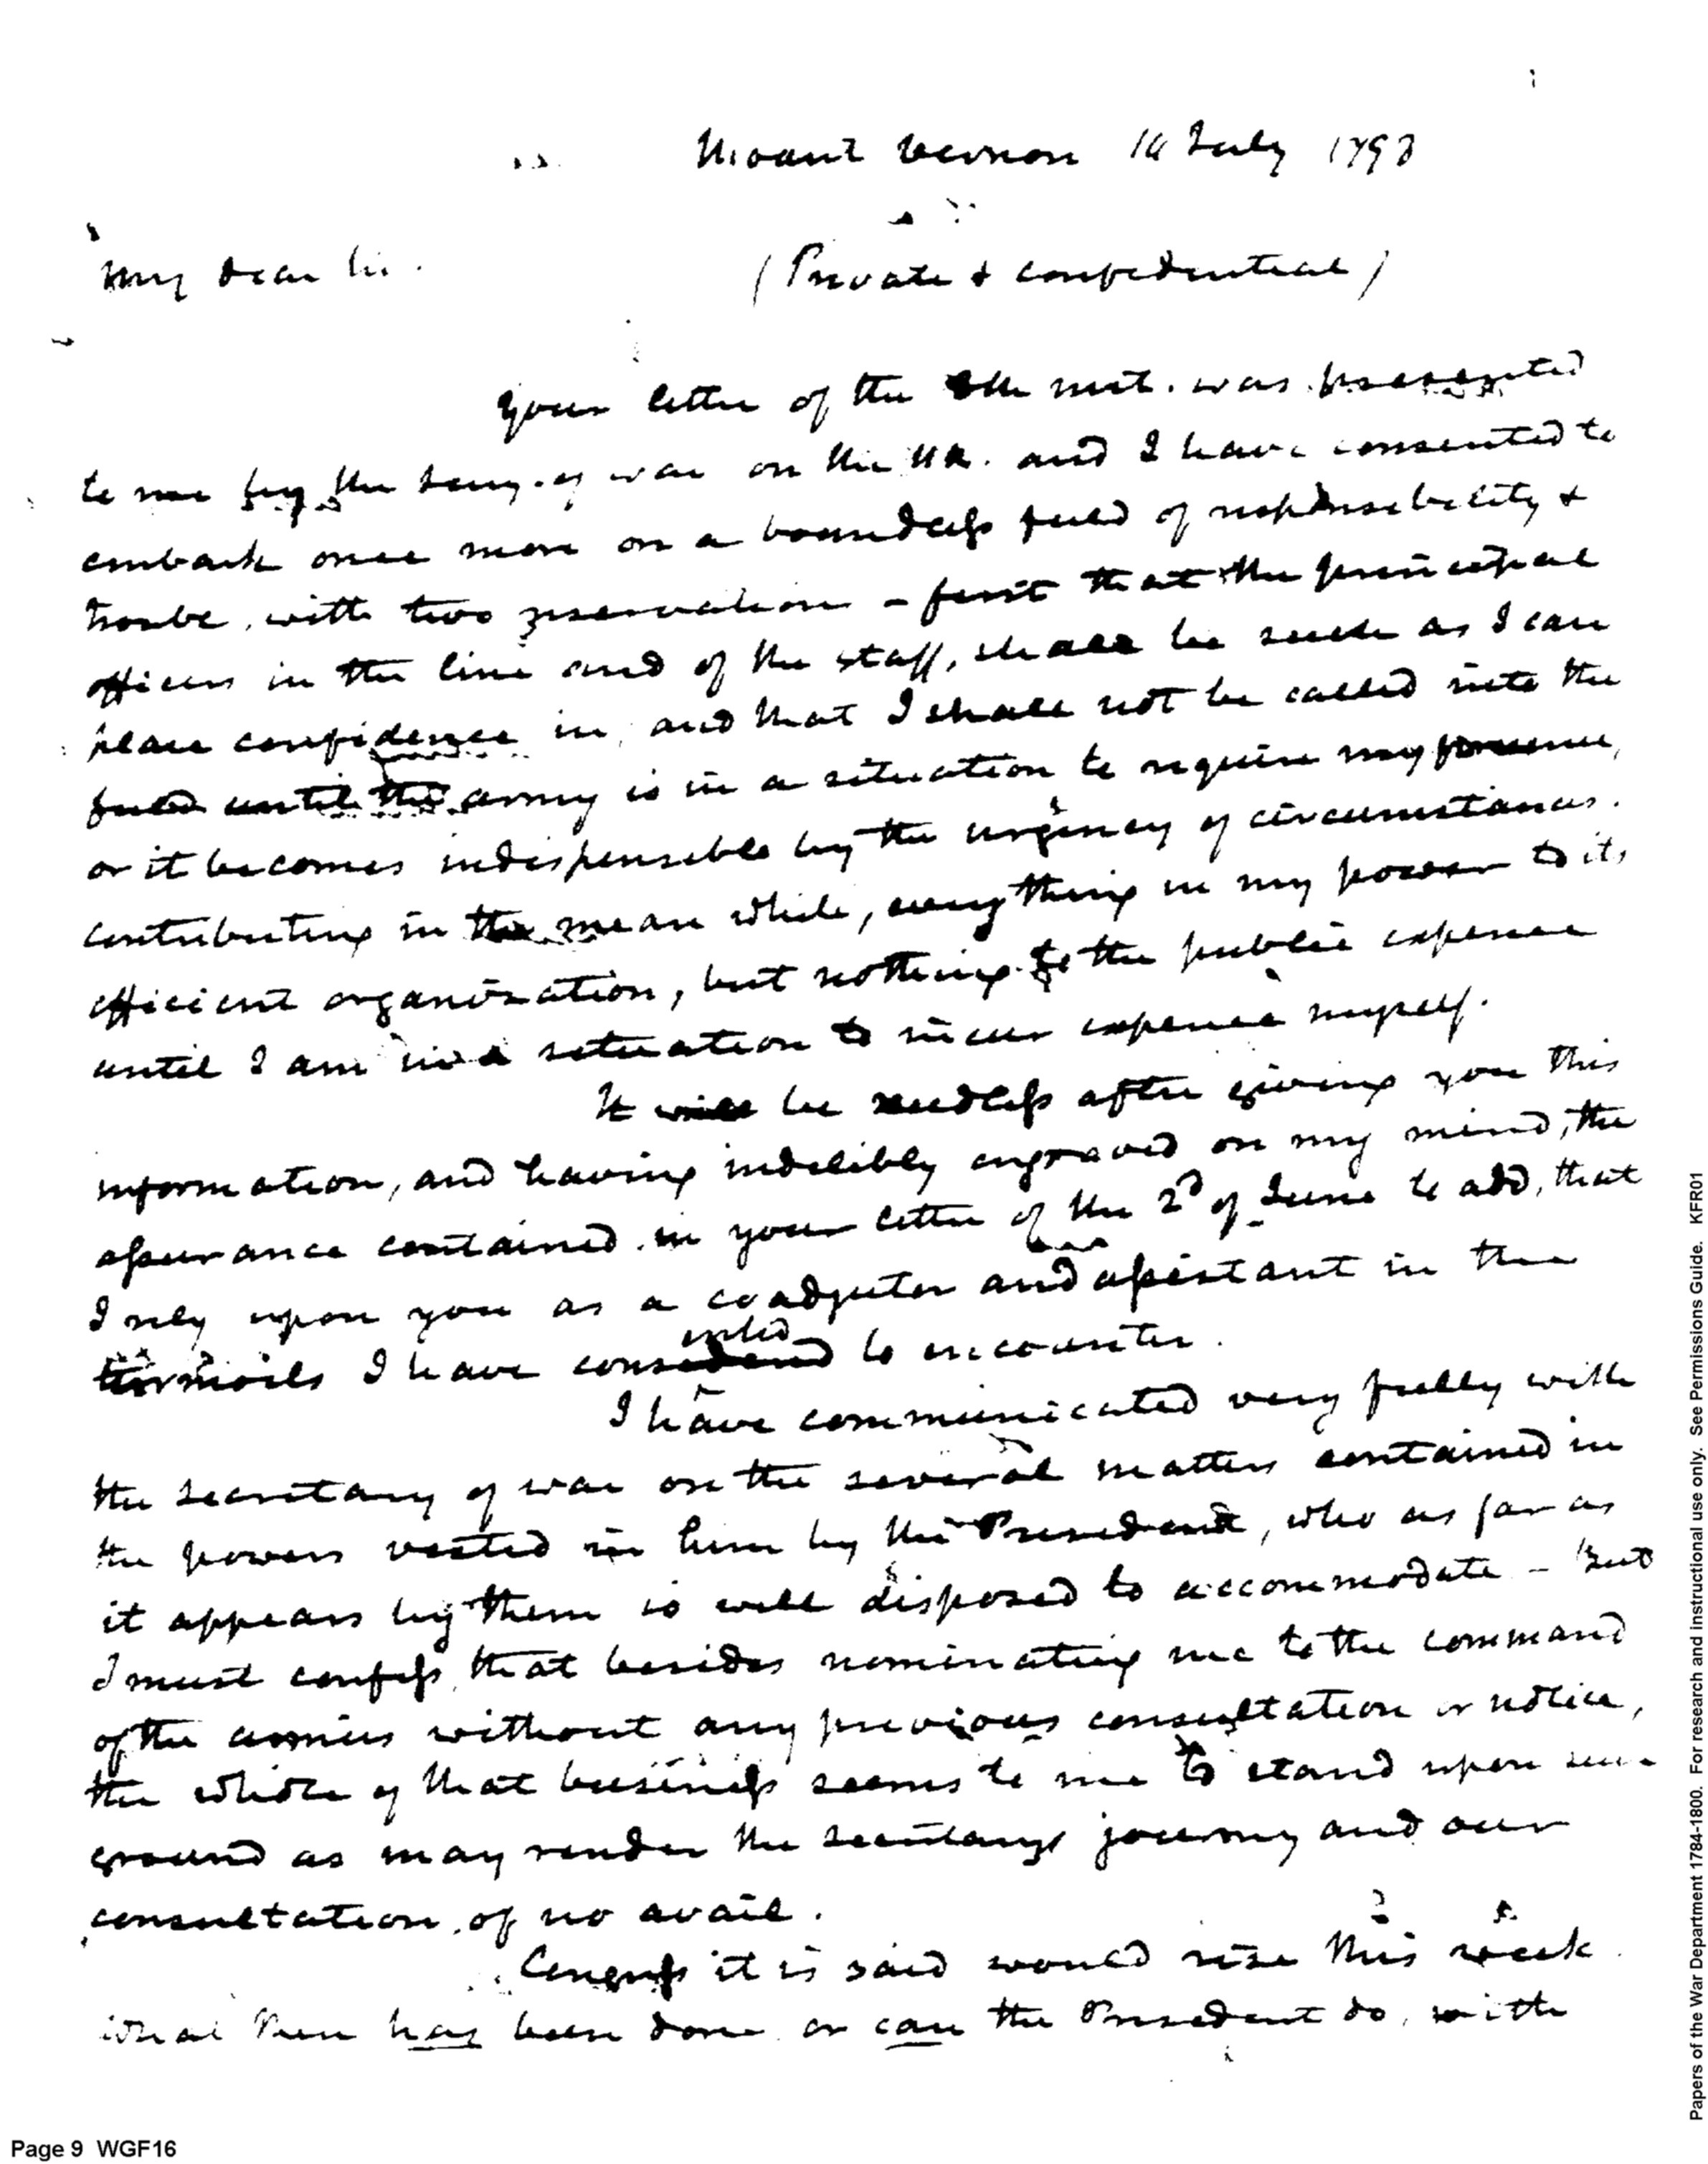 Mount Vernon 14 July 1798
My dear Sir.
(Private & confidential)
Your letter of the 8th inst. was presented
to me by the Secy. of war on the 11th. and I have consented to
embark once more on a boundless field of responsibility &
trouble, with two reservation – first that the principal
officers in the line and of the staff, shall be such as I can
place confidence in, and that I shall not be called into the
field until the army is in a situation to require my presence,
or it becomes indispensible by the urgency of circumstances.
contributing in the mean while, every thing in my power to its
efficient organization, but nothing to the public expence
until I am in a situation to incur expence myself.
It will be needless after giving you this
information, and having indelibly engraved on my mind, the
assurance contained in your letter of the 2d of June to add, that
I rely upon you as a coadjutor and assistant in the
turmoils I have consented to encounter.
I have communicated very fully with
the secretary of war on the several matters contained in
the powers vested in him by the President, who as far as
it appears by them is well disposed to accommodate – But
I must confess, that besides nominating me to the command
of the armies without any previous consultation or notice,
the whole of that business seems to me to stand upon such
ground as may render the secretarys journey and our
consultation, of no avail.
Congress it is said would rise this week
What then has been done, or can the President do, with
Page 9 WGF16
Papers of the War Department 1784-1800. For research and instructional use only. See Permissions Guide. KFR01